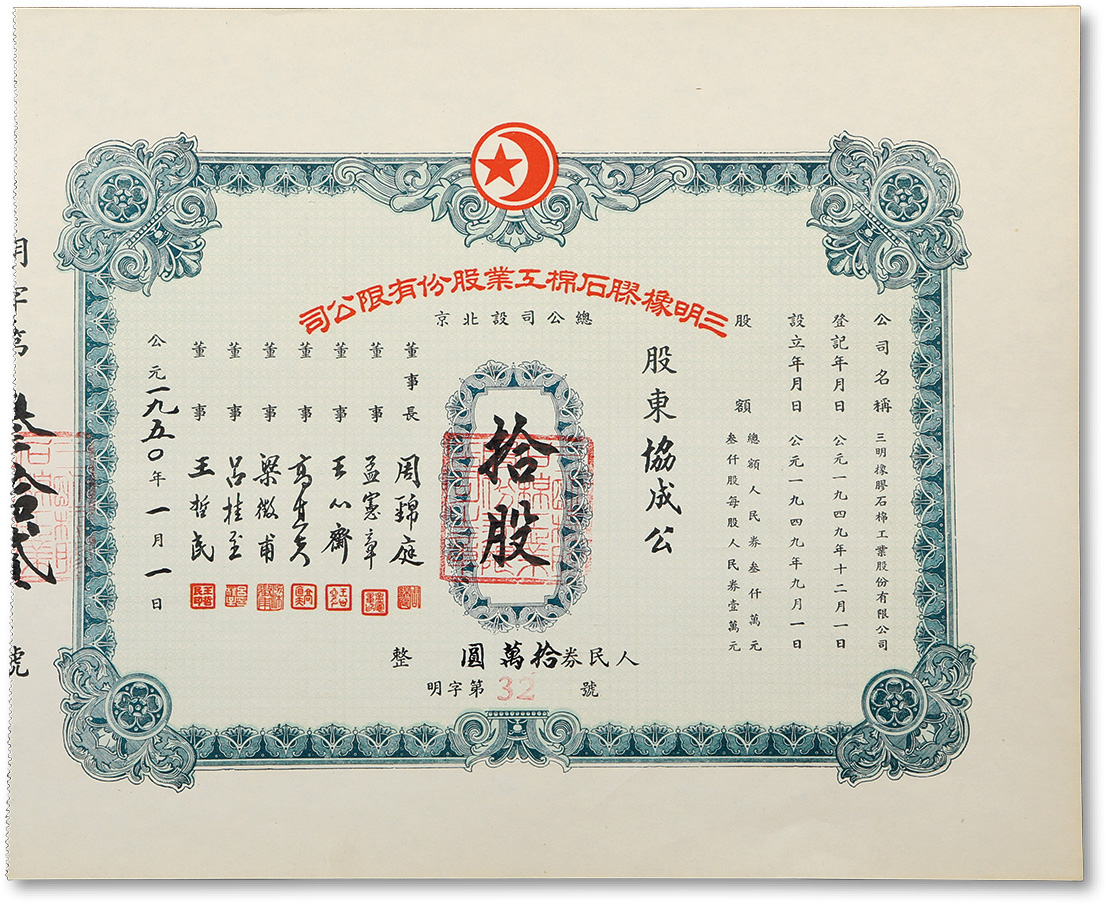 三明橡膠石棉工業股份有限公司
總公司設北京
公司名稱 三明橡膠石棉工業股份有限公司
登記年月日 公元一九四九年十二月一日
設立年月日 公元一九四九年九月一日
股額 總額人民券叁仟萬元
叁仟股每股人民券壹萬元
股東協成公
拾股
董事長 周錦庭
董事 孟憲章
董事 王心齋
董事
董事 梁徵甫
董事 呂桂至
董事 王哲民
公元一九五〇年一月一日
人民券拾萬圓整
明字第32號
明字第叁拾貳號